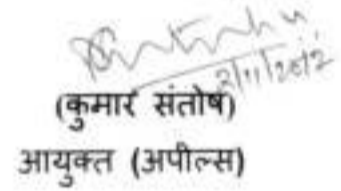 2/11/2012
(कुमार संतोष)
आयुक्त (अपील्स)